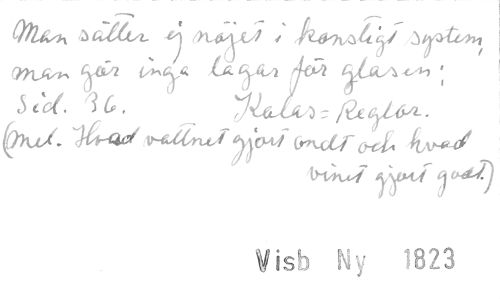 Man sätter ej nöjet i konstigt system,
man gör inga lagar för glasen;
Sid. 36. Kalas=Reglor.
(Mel. Hvad vattnet gjort ondt och hvad
vinet gjort godt.)
Visb Ny 1823